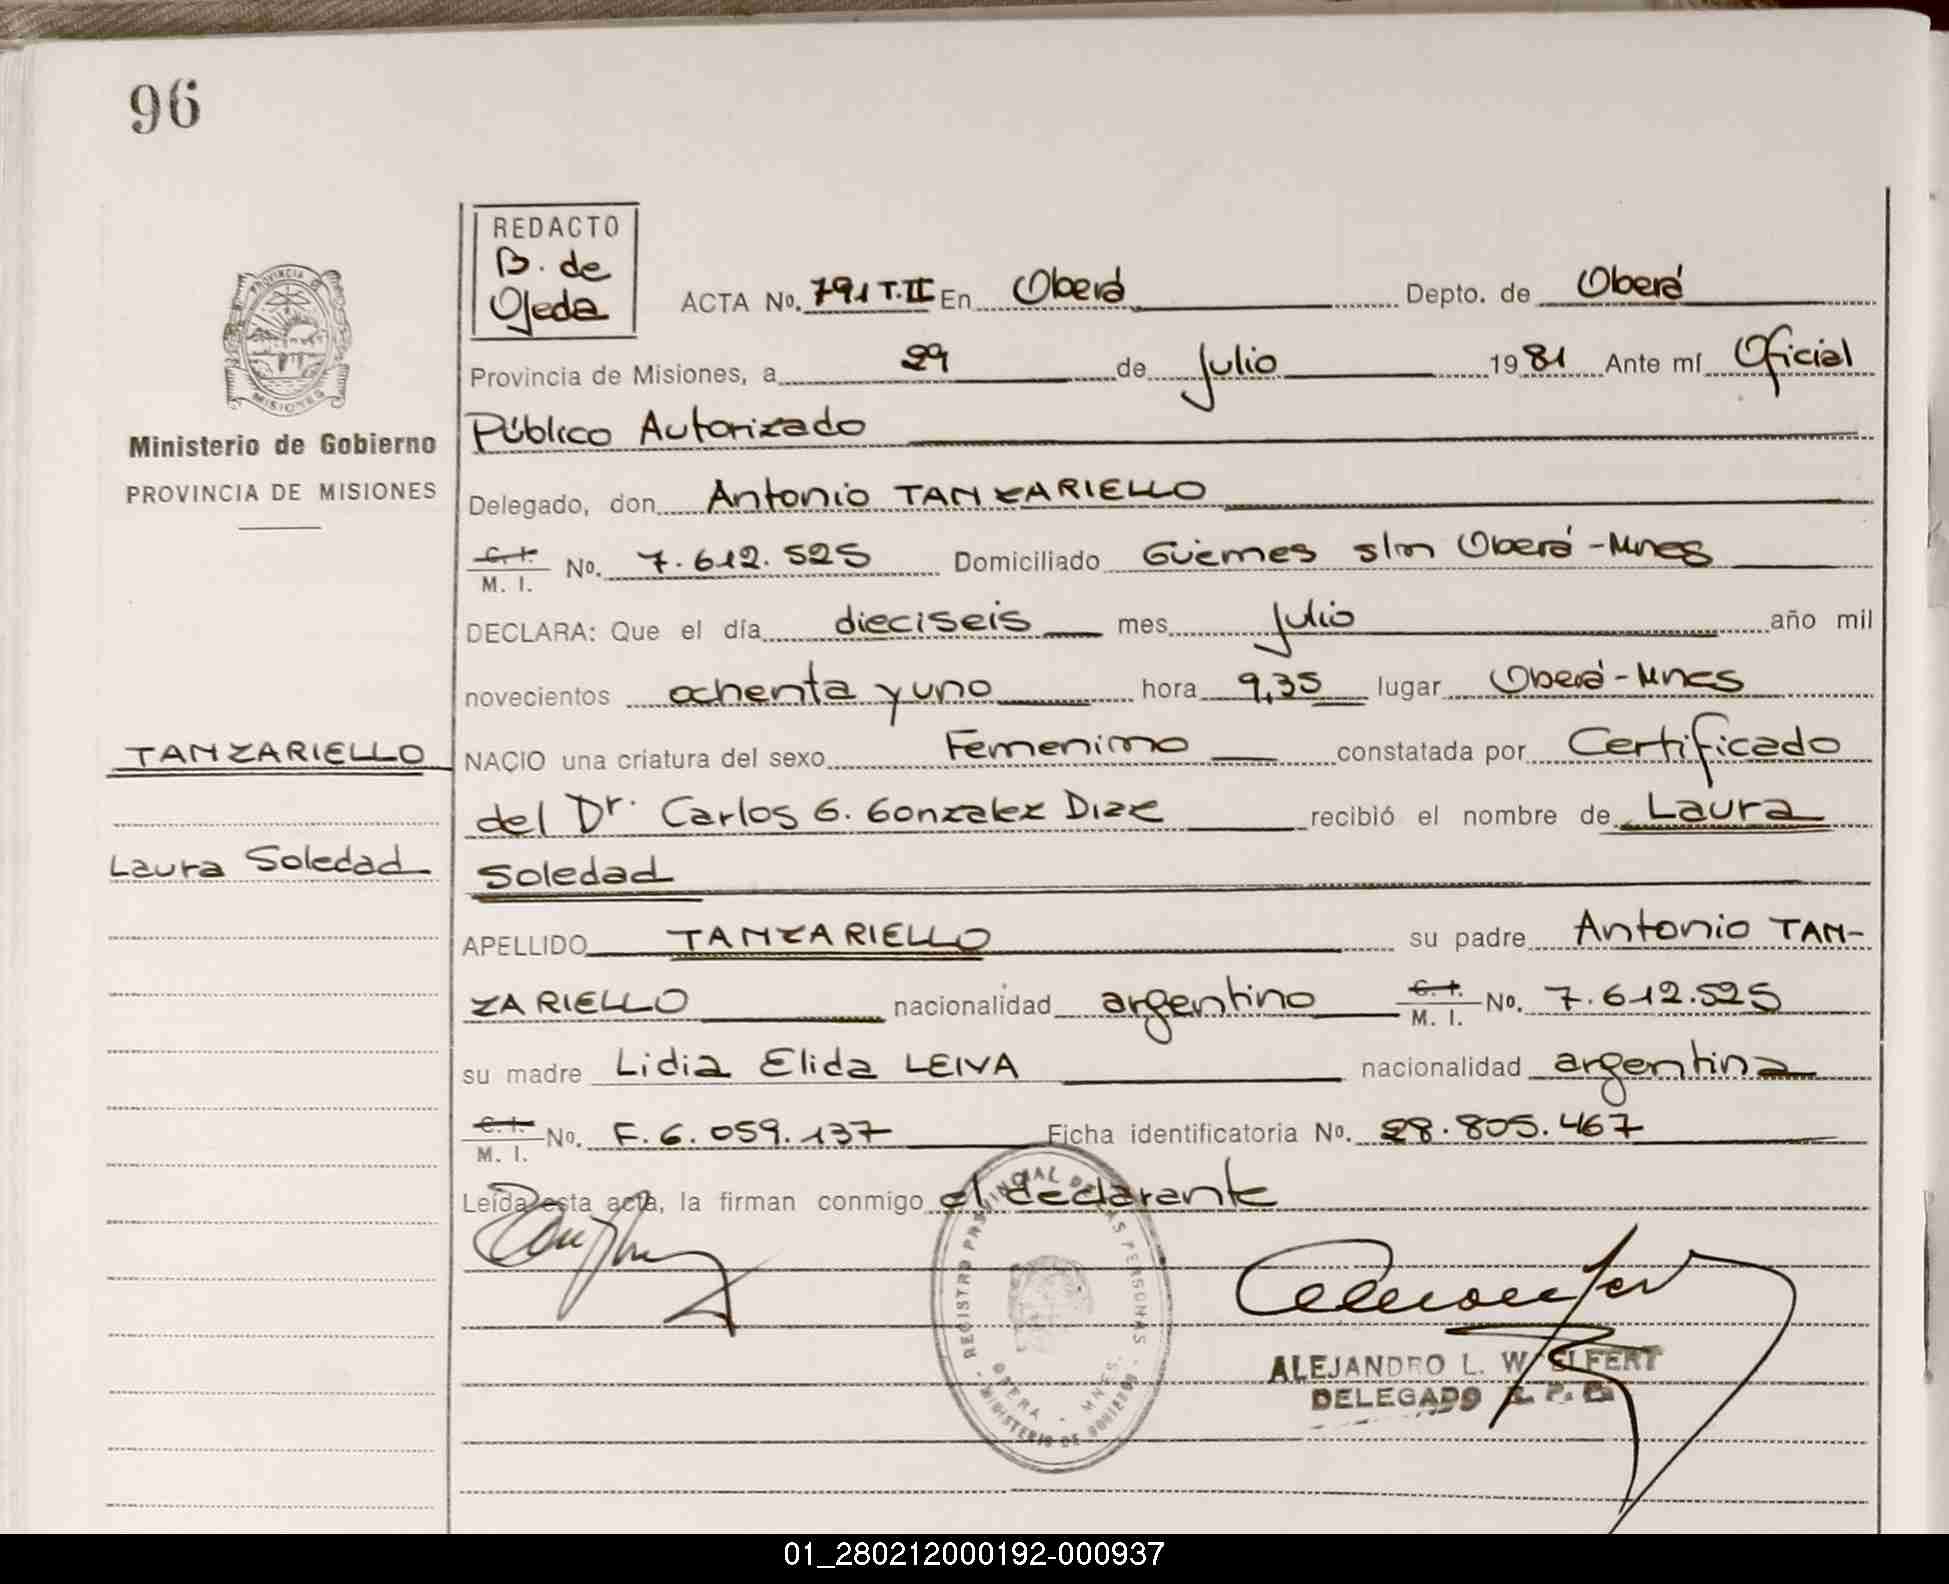 96
REDACTO
B. de
Ojeda
PROVINCIA
MISIONES
ACTA No. 791 T.II En Oberá Depto. de Oberá
Provincia de Misiones, a 29 de Julio 1981 Ante mí Oficial
Ministerio de Gobierno
Público Autorizado
PROVINCIA DE MISIONES
Delegado, don Antonio TANZARIELLO
C. I. M. I. No. 7.612.525 Domiciliado Güemes s/n Oberá-Mnes
DECLARA: Que el día dieciseis mes Julio año mil
novecientos ochenta y uno hora 9,35 lugar Oberá-Mnes
TANZARIELLO
NACIO una criatura del sexo Femenino constatada por Certificado
del Dr. Carlos G. Gonzalez Diaz recibió el nombre de Laura
Laura Soledad
Soledad
APELLIDO TANZARIELLO su padre Antonio TAN-
ZARIELLO nacionalidad argentino C. I. M. I. No. 7.612.525
su madre Lidia Elida LEIVA nacionalidad argentina
C. I. M. I. No. F.6.059.137 Ficha identificatoria No. 28.805.467
Leída esta acta, la firman conmigo el declarante
REGISTRO PROVINCIAL DE LAS PERSONAS
OBERA - MNES.
MINISTERIO DE GOBIERNO
ALEJANDRO L.
DELEGADO
01_280212000192-000937